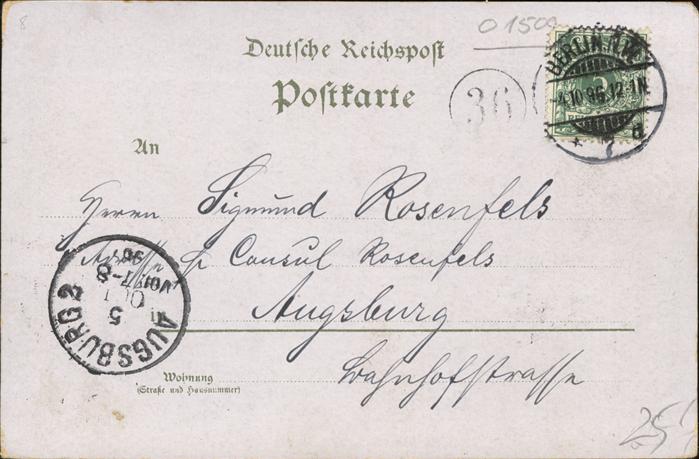 8
O 1509
Deutsche Reichspost
Postkarte
36
BERLIN N.W.
4.10.96.12-1N.
* 7 d
An
Herrn Sigmund Rosenfels
Adresse Consul Rosenfels
Augsburg
in
Bahnhofstrasse
Wohnung
(Straße und Hausnummer)
AUGSBURG 2
5
OCT
VORM 7-8
96
25